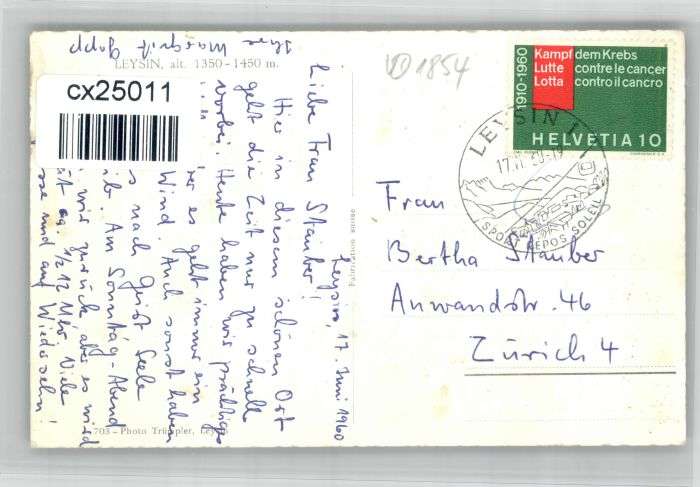 LEYSIN, alt. 1350-1450 m.
cx25011
VD 1854
Leysin, 17. Juni 1960
Liebe Frau Stauber!
Hier in diesem schönen Ort
geht die Zeit nur zu schnell
vorbei. Heute haben wir prächtiges
es geht immer ein
Wind. Auch sonst haben
nach Geist Seele
Am Sonntag-Abend
wir zurück aber es wird
1/2 12 Uhr. Viele
und auf Wiedersehn!
Ihre Margrit Gopp
703 - Photo Trümpler, Leysin
1910-1960
Kampf dem Krebs
Lutte contre le cancer
Lotta contro il cancro
HELVETIA 10
LEYSIN 1
17.VI.60-19
SPORT REPOS SOLEIL
Frau
Bertha Stauber
Anwandstr. 46
Zürich 4